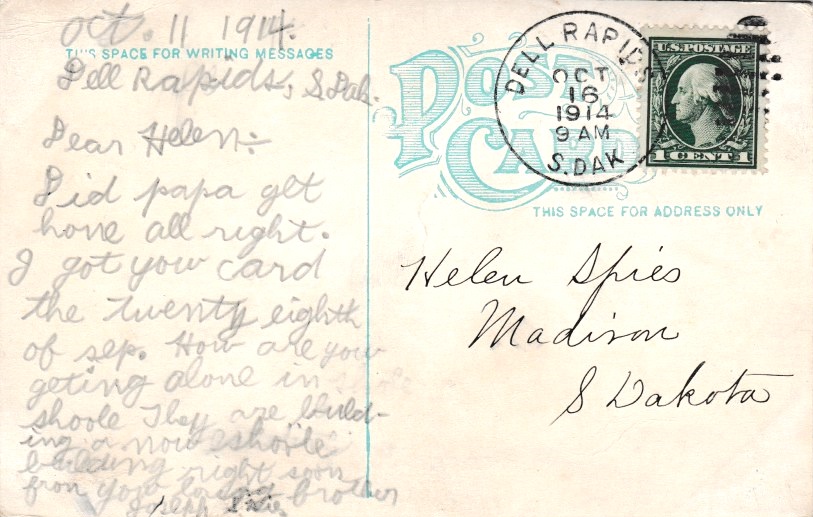 Oct. 11 1914.
THIS SPACE FOR WRITING MESSAGES
Dell Rapids, S. Dak.
Dear Helen:-
Did papa get
hone all right.
I got your card
the twenty eighth
of sep. How are you
geting alone in
shoole They are build-
ing a now shoole
building right soon
fron your loving brother
Joseph
POST CARD
DELL RAPIDS
OCT
16
1914
9 AM
S. DAK
U.S. POSTAGE
1 CENT 1
THIS SPACE FOR ADDRESS ONLY
Helen Spies
Madison
S Dakota